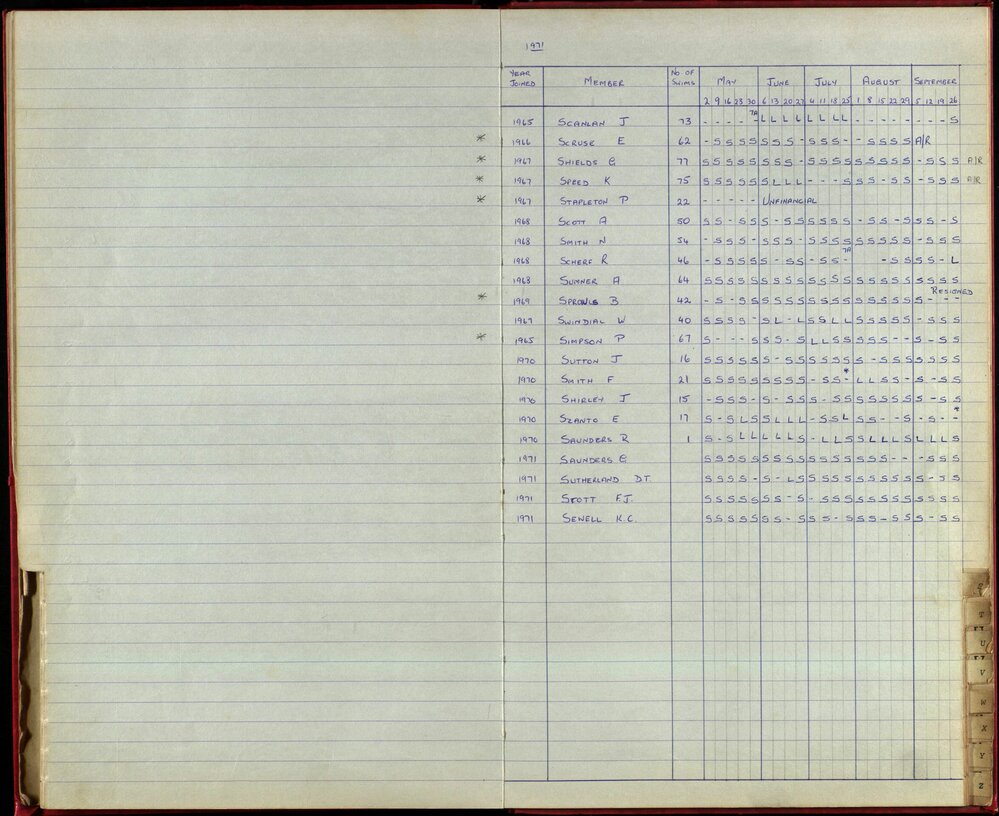 1971
YEAR JOINED MEMBER NO. OF SWIMS MAY JUNE JULY AUGUST SEPTEMBER
2 9 16 23 30 6 13 20 27 4 11 18 25 1 8 15 22 29 5 12 19 26
1965 SCANLAN J 73 - - - - - TA L L L L L L L L - - - - - - - - S
* 1966 SCRUSE E 62 - S S S S S S S - S S S - - S S S S A/R
* 1967 SHIELDS G 77 S S S S S S S S - S S S S S S S S S - S S S A/R
* 1967 SPEED K 75 S S S S S S L L L - - - S S S - S S - S S S A/R
* 1967 STAPLETON P 22 - - - - - UNFINANCIAL
1968 SCOTT A 50 S S - S S S - S S S S S S - S S - S S S - S
1968 SMITH N 54 - S S S - S S S - S S S S S S S S S - S S S
1968 SCHERF R 46 - S S S S S - S S - S S - TA - S S S S - L
1968 SUMNER A 64 S S S S S S S S S S S S S S S S S S S S S S
* 1969 SPROWLS B 42 - S - S S S S S S S S S S S S S S S S - - - RESIGNED
1967 SWINDIAL W 40 S S S S - S L - L S S L L S S S S S - S S S
* 1965 SIMPSON P 67 S - - - S S S - S L L S S S S S - - S - S S
1970 SUTTON J 16 S S S S S S - S S S S S S S - S S S S S S S
1970 SMITH F 21 S S S S S S S S S - S S - * L L S S - S - S S
1970 SHIRLEY J 15 - S S S - S - S S S - S S S S S S S S - S S
1970 SZANTO E 17 S - S L S S L L L - S S L S S - - S - S - - *
1970 SAUNDERS R 1 S - S L L L L L S - L L S S L L L S L L L S
1971 SAUNDERS G S S S S S S S S S S S S S S S S - - - S S S
1971 SUTHERLAND D.T. S S S S - S - L S S S S S S S S S S S - S S
1971 STOTT F.J. S S S S S S S - S - S S S S S S S S S S S S
1971 SEWELL K.C. S S S S S S S - S S S - S S S - S S S - S S
S
T
U
V
W
X
Y
Z